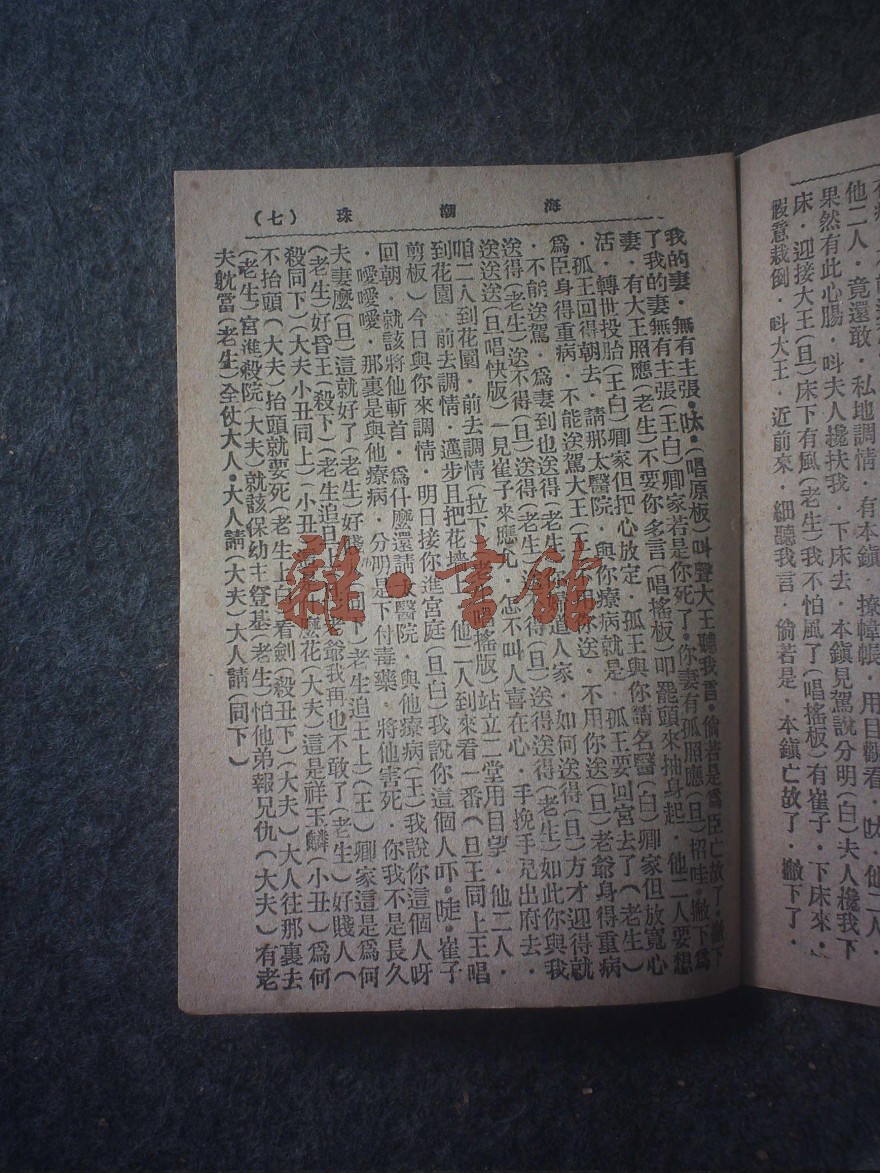 他二人．竟還敢．私地調情．有本鎮．撩幃帳．用目觀看．呔．他二人．
果然有此心腸．呌夫人攙扶我．下床去．本鎮見駕說分明(白)夫人攙我下
床．迎接大王(旦)床下有風(老生)我不怕風了(唱搖板)有崔子．下床來．
假意栽倒．呌大王．近前來．細聽我言．倘若是．本鎮亡故了．撇下了．
海潮珠 (七)
我的妻．無有主張．呔．(唱原板)呌聲大王聽我言．倘若是爲臣亡故了．撇下
了我的妻無有主張(王白)卿家若是你死了．你妻有孤照應(旦)招哇．撇下爲
妻．有大王照應(老生)不要你多言(唱搖板)叩罷頭來抽身起．他二人要想
活．轉世投胎(王白)卿家但把心放定．孤王與你請名醫(白)卿家但放寬心
．孤王回得朝去．請那太醫院．與你療病就是．孤王要回宮去了(老生)
爲臣身得重病．不能送駕大王(王)不用你送．不用你送(旦)老爺身得重病
．不能送駕．爲妻到也送得(老生)官道人家．如何送得(旦)方才迎得就
送得(老生)送不得(旦)送得(老生)送不得(旦)送得送得(老生)如此你與我
送送送(旦唱快版)一見崔子來應允．怎不叫人喜在心．手挽手兒出府去．
咱二人到花園．前去調情(拉下)(老生唱搖版)站立二堂用目望．他二人．
到花園．前去調情．邁步且把花墻上．他二人到來看一番(旦王同上王唱
剪板)今日與你來調情．明日接你進宮庭(旦白)我說你這個人吓．㖿．崔子
回朝．就該將他斬首．爲什麽還請太醫院．與他療病(王)我說你這個人呀
．噯噯噯．那裏是與他療病．分明是下付毒藥．將他害死．你我不是長久
夫妻麽(旦)這就好了(老生)好賤(同下)(老生追王上)(王)卿家這是爲何
(老生)好昏王(殺下)(老生追旦上)(旦)老爺我再也不敢了(老生)好賤人(
殺同下)(大夫小丑同上)(小丑)麽花(大夫)這是祥玉麟(小丑)爲何
不抬頭(大夫)抬頭就要死(老生上白)看劍(殺丑下)(大夫)大人往那裏去
(老生)宮進殺院(大夫)就該保幼主登基(老生)怕他弟報兄仇(大夫)有老
夫躭當(老生)全仗大人．大人請(大夫)大人請(同下)
雜·書館